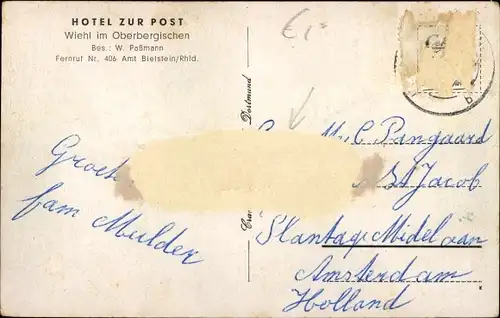 HOTEL ZUR POST
Wiehl im Oberbergischen
Bes.: W. Paßmann
Fernruf Nr. 406 Amt Bielstein/Rhld.
Groet
fam Mulder
Dortmund
Cra
C. Pangaard
St Jacob
Plantage Middellaan
Amsterdam
Holland
b